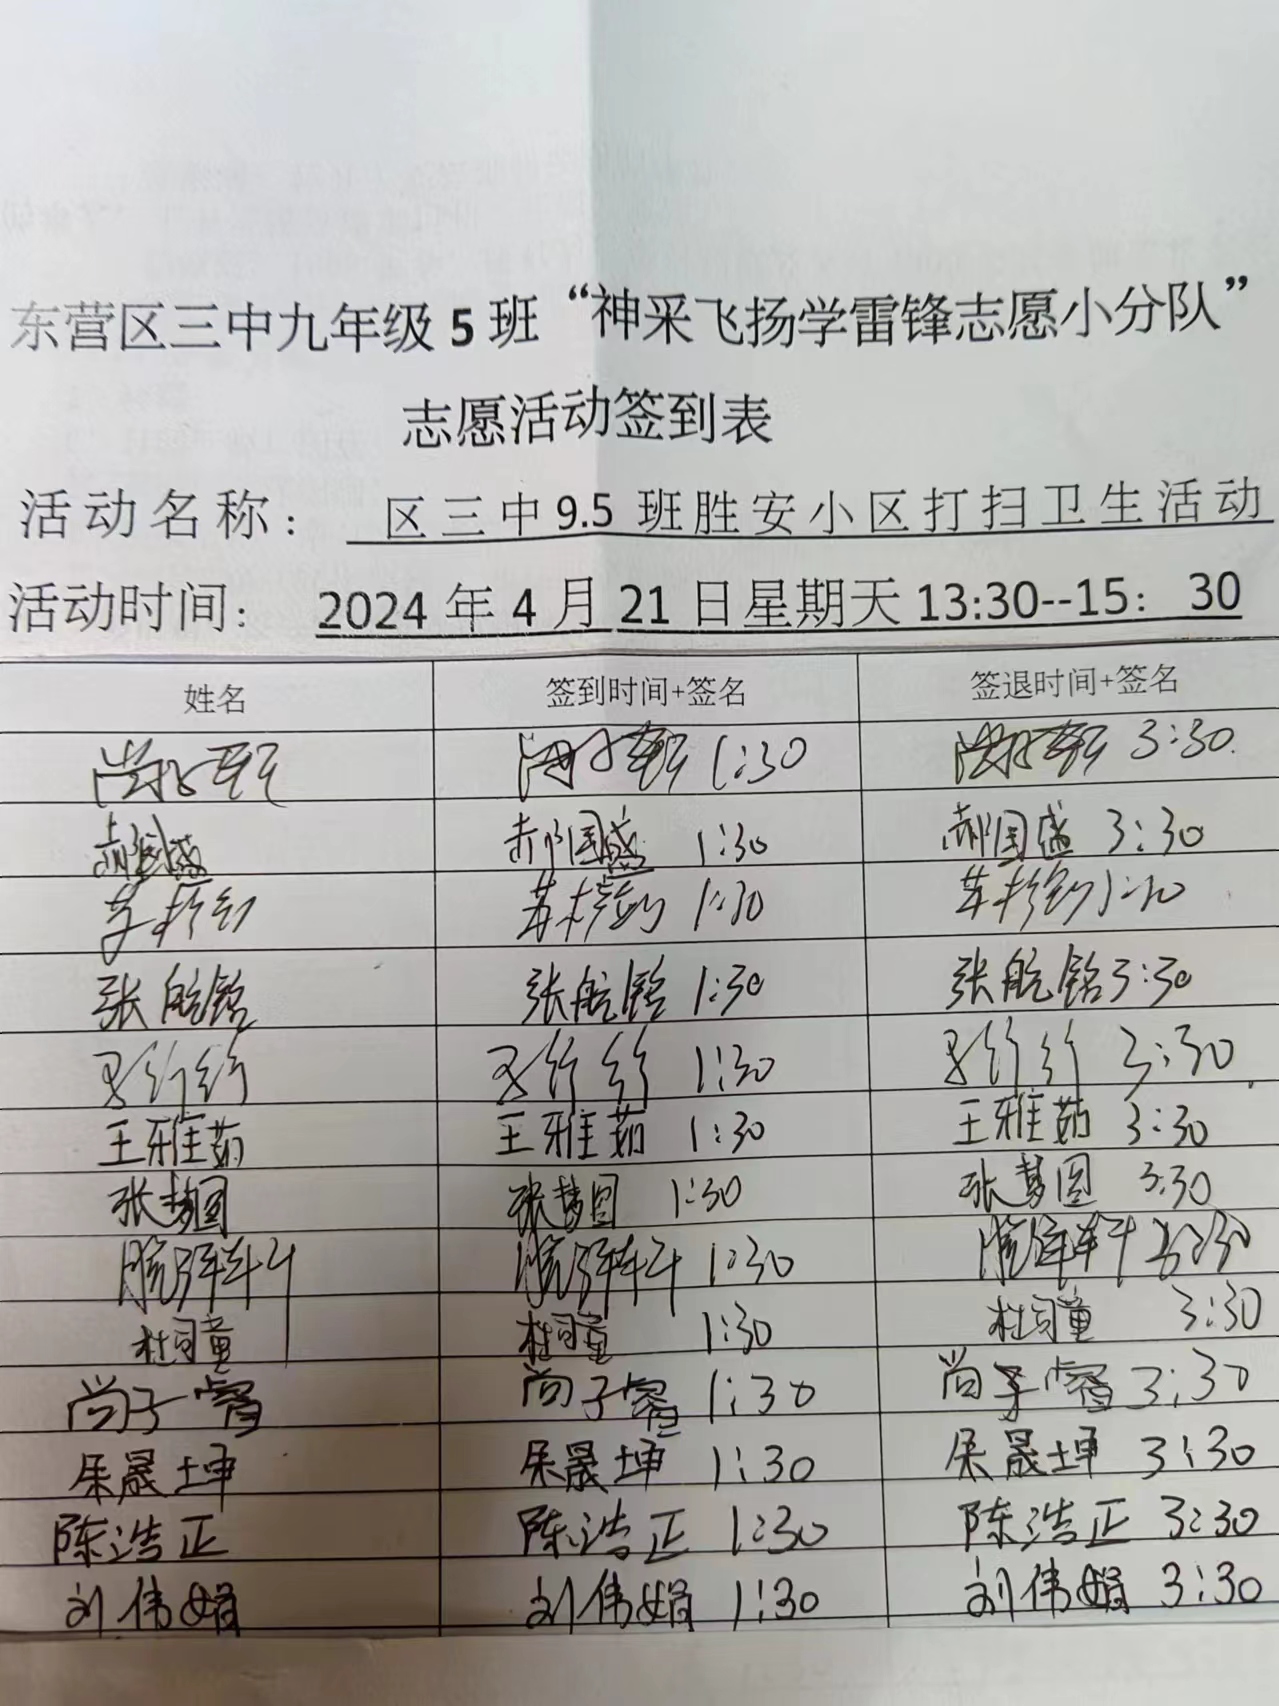 东营区三中九年级5班“神采飞扬学雷锋志愿小分队”
志愿活动签到表
活动名称： 区三中9.5 班胜安小区打扫卫生活动
活动时间： 2024 年 4 月 21 日星期天 13:30--15： 30
姓名 签到时间+签名 签退时间+签名
尚 1:30 3:30
郝国盛 郝国盛 1:30 郝国盛 3:30
苏 苏 1:30 苏
张航铭 张航铭 1:30 张航铭 3:30
1:30 3:30
王雅茹 王雅茹 1:30 王雅茹 3:30
张梦圆 张梦圆 1:30 张梦圆 3:30
1:30 3:30
杜司童 杜司童 1:30 杜司童 3:30
尚子睿 尚子睿 1:30 尚子睿 3:30
晟坤 晟坤 1:30 晟坤 3:30
陈浩正 陈浩正 1:30 陈浩正 3:30
刘伟娟 刘伟娟 1:30 刘伟娟 3:30